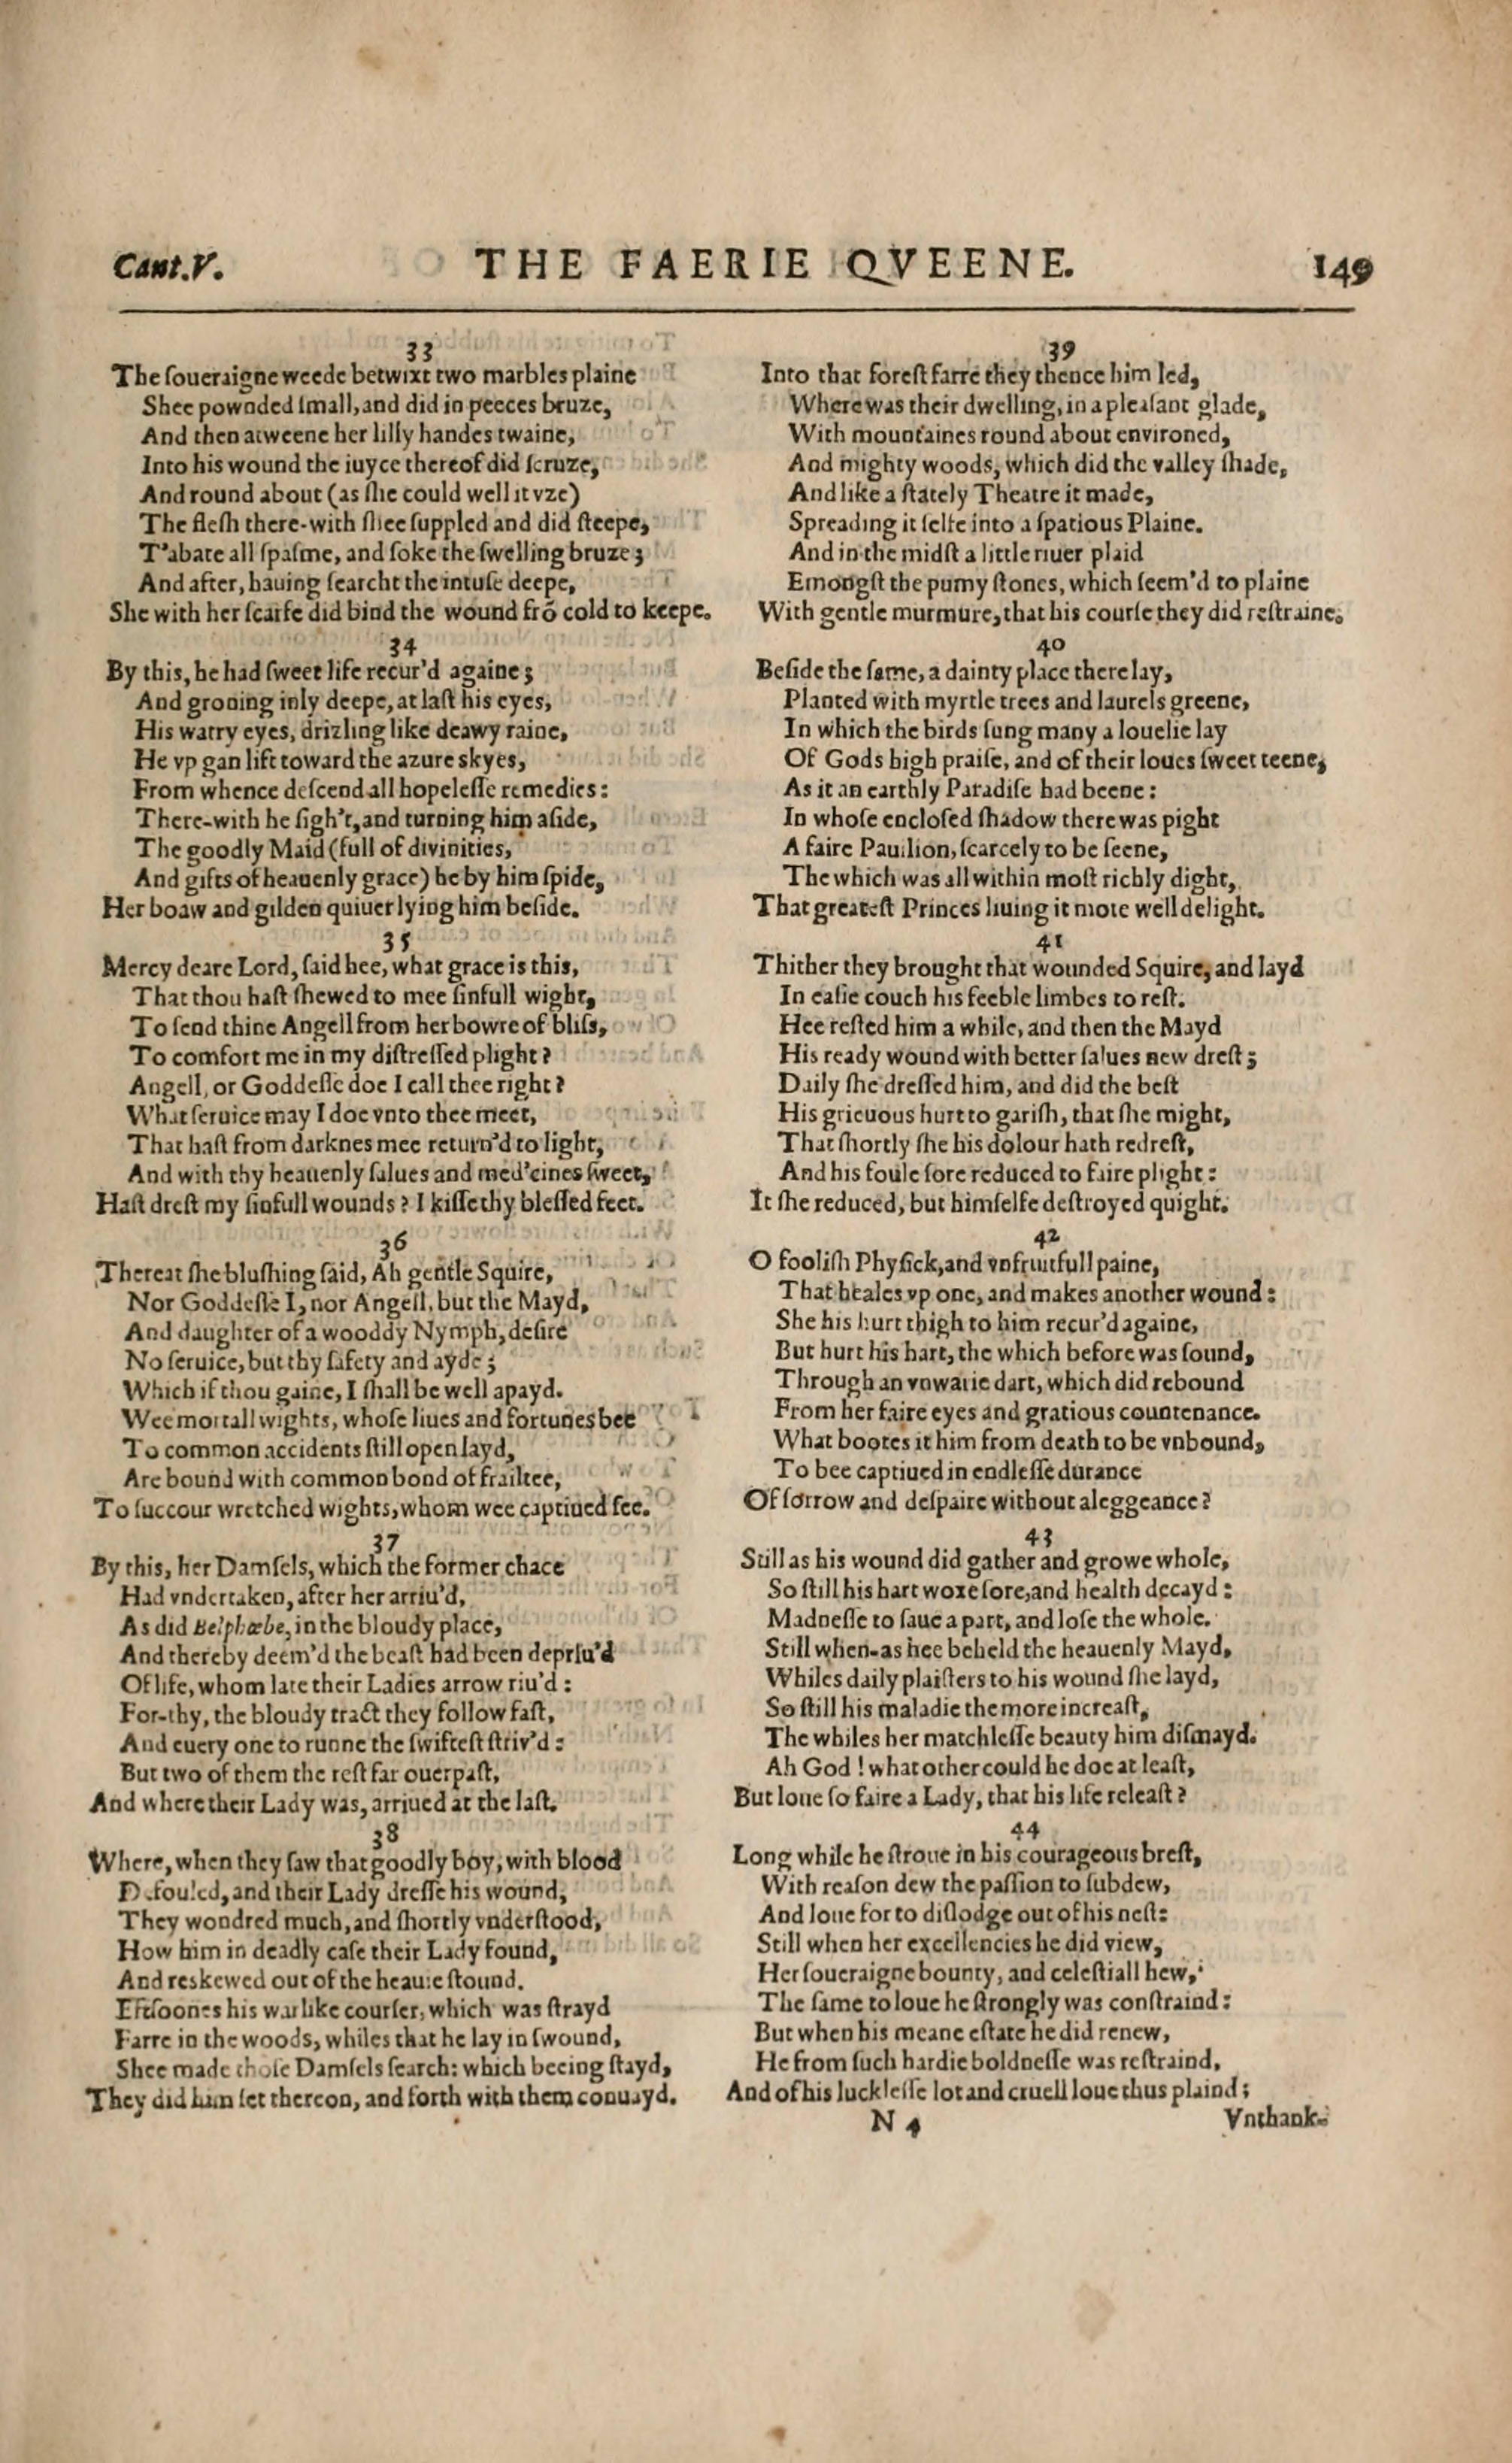 Cant.V.
THE FAERIE QVEENE.
149
33
The ſoueraigne weede betwixt two marbles plaine
Shee pownded ſmall, and did in peeces bruze,
And then atweene her lilly handes twaine,
Into his wound the iuyce thereof did ſcruze,
And round about (as ſhe could well it vze)
The fleſh there-with ſhee ſuppled and did ſteepe,
T'abate all ſpaſme, and ſoke the ſwelling bruze;
And after, hauing ſearcht the intuſe deepe,
She with her ſcarfe did bind the wound frō cold to keepe.
34
By this, he had ſweet life recur'd againe;
And groning inly deepe, at laſt his eyes,
His watry eyes, drizling like deawy raine,
He vp gan lift toward the azure skyes,
From whence deſcend all hopeleſſe remedies:
There-with he ſigh't, and turning him aſide,
The goodly Maid (full of divinities,
And gifts of heauenly grace) he by him ſpide,
Her boaw and gilden quiuer lying him beſide.
35
Mercy deare Lord, ſaid hee, what grace is this,
That thou haſt ſhewed to mee ſinfull wight,
To ſend thine Angell from her bowre of bliſs,
To comfort me in my diſtreſſed plight?
Angell, or Goddeſſe doe I call thee right?
What ſeruice may I doe vnto thee meet,
That haſt from darknes mee return'd to light,
And with thy heauenly ſalues and med'cines ſweet,
Haſt dreſt my ſinfull wounds? I kiſſe thy bleſſed feet.
36
Thereat ſhe bluſhing ſaid, Ah gentle Squire,
Nor Goddeſſe I, nor Angell, but the Mayd,
And daughter of a wooddy Nymph, deſire
No ſeruice, but thy ſafety and ayde;
Which if thou gaine, I ſhall be well apayd.
Wee mortall wights, whoſe liues and fortunes bee
To common accidents ſtill open layd,
Are bound with common bond of frailtee,
To ſuccour wretched wights, whom wee captiued ſee.
37
By this, her Damſels, which the former chace
Had vndertaken, after her arriu'd,
As did Belphœbe, in the bloudy place,
And thereby deem'd the beaſt had been depriu'd
Of life, whom late their Ladies arrow riu'd:
For-thy, the bloudy tract they follow faſt,
And euery one to runne the ſwifteſt ſtriv'd:
But two of them the reſt far ouerpaſt,
And where their Lady was, arriued at the laſt.
38
Where, when they ſaw that goodly boy, with blood
Defouled, and their Lady dreſſe his wound,
They wondred much, and ſhortly vnderſtood,
How him in deadly caſe their Lady found,
And reskewed out of the heauie ſtound.
Eftſoones his warlike courſer, which was ſtrayd
Farre in the woods, whiles that he lay in ſwound,
Shee made thoſe Damſels ſearch: which beeing ſtayd,
They did him ſet thereon, and forth with them conuayd.
39
Into that foreſt farre they thence him led,
Where was their dwelling, in a pleaſant glade,
With mountaines round about environed,
And mighty woods, which did the valley ſhade,
And like a ſtately Theatre it made,
Spreading it ſelfe into a ſpatious Plaine.
And in the midſt a little riuer plaid
Emongſt the pumy ſtones, which ſeem'd to plaine
With gentle murmure, that his courſe they did reſtraine.
40
Beſide the ſame, a dainty place there lay,
Planted with myrtle trees and laurels greene,
In which the birds ſung many a louelie lay
Of Gods high praiſe, and of their loues ſweet teene,
As it an earthly Paradiſe had beene:
In whoſe encloſed ſhadow there was pight
A faire Pauilion, ſcarcely to be ſeene,
The which was all within moſt richly dight,
That greateſt Princes liuing it mote well delight.
41
Thither they brought that wounded Squire, and layd
In eaſie couch his feeble limbes to reſt.
Hee reſted him a while, and then the Mayd
His ready wound with better ſalues new dreſt;
Daily ſhe dreſſed him, and did the beſt
His grieuous hurt to gariſh, that ſhe might,
That ſhortly ſhe his dolour hath redreſt,
And his foule ſore reduced to faire plight:
It ſhe reduced, but himſelfe deſtroyed quight.
42
O fooliſh Phyſick, and vnfruitfull paine,
That heales vp one, and makes another wound:
She his hurt thigh to him recur'd againe,
But hurt his hart, the which before was ſound,
Through an vnwarie dart, which did rebound
From her faire eyes and gratious countenance.
What bootes it him from death to be vnbound,
To bee captiued in endleſſe durance
Of ſorrow and deſpaire without aleggeance?
43
Still as his wound did gather and growe whole,
So ſtill his hart woxe ſore, and health decayd:
Madneſſe to ſaue a part, and loſe the whole.
Still when-as hee beheld the heauenly Mayd,
Whiles daily plaiſters to his wound ſhe layd,
So ſtill his maladie the more increaſt,
The whiles her matchleſſe beauty him diſmayd.
Ah God! what other could he doe at leaſt,
But loue ſo faire a Lady, that his life releaſt?
44
Long while he ſtroue in his courageous breſt,
With reaſon dew the paſſion to ſubdew,
And loue for to diſlodge out of his neſt:
Still when her excellencies he did view,
Her ſoueraigne bounty, and celeſtiall hew,
The ſame to loue he ſtrongly was conſtraind:
But when his meane eſtate he did renew,
He from ſuch hardie boldneſſe was reſtraind,
And of his luckleſſe lot and cruell loue thus plaind;
N 4
Vnthank-